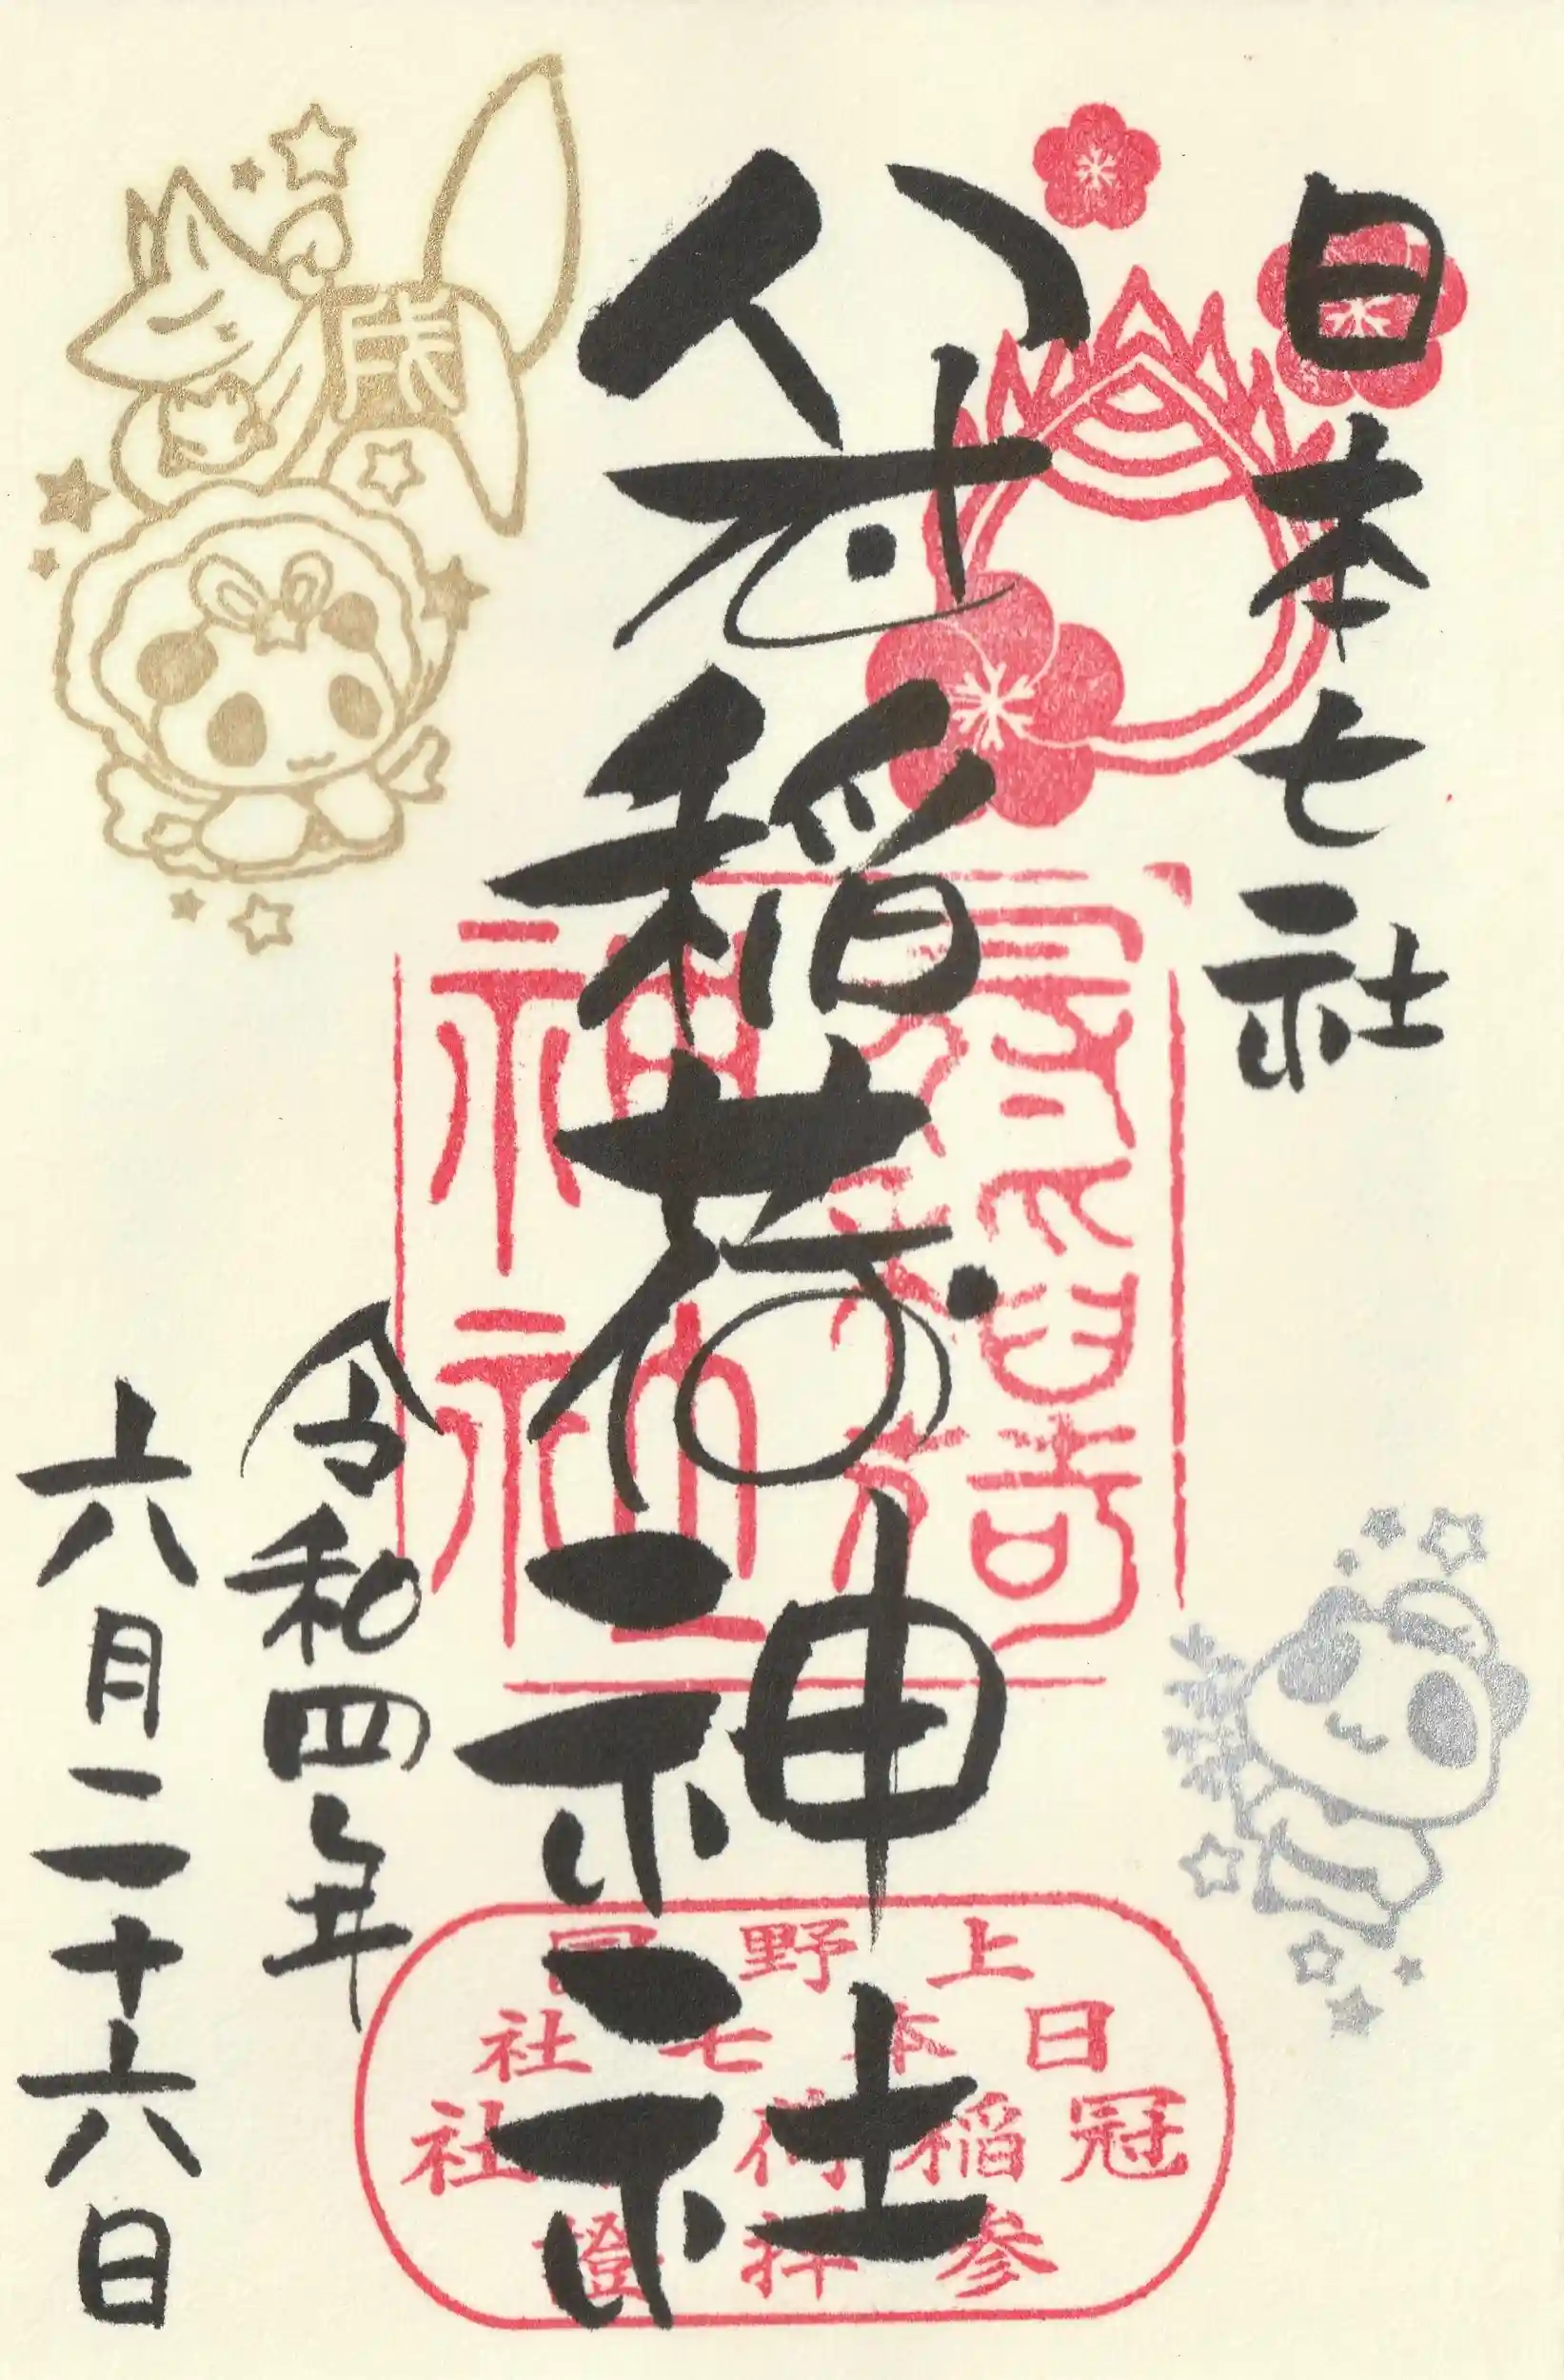 日本七社
冠稲荷神社
令和四年
六月二十六日
神社
上野國
日本七社
冠稲荷神社
参拝證